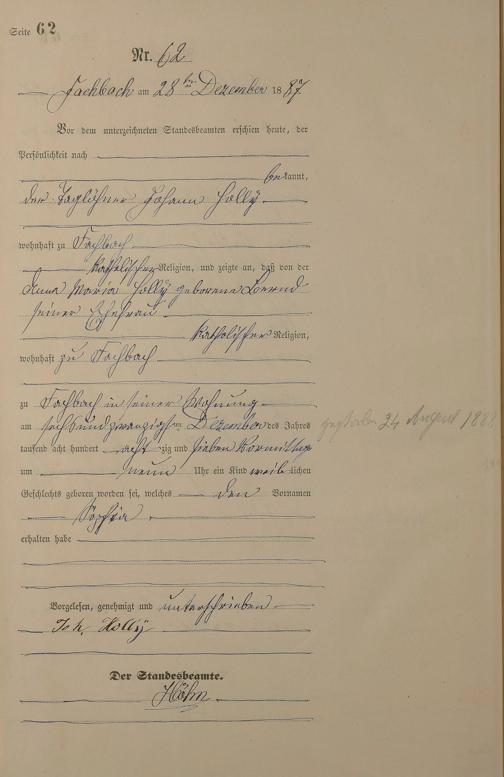 Seite 62
Nr. 62
Fachbach am 28ten Dezember 1887
Vor dem unterzeichneten Standesbeamten erschien heute, der
Persönlichkeit nach
bekannt,
der Taglöhner Johann Holly
wohnhaft zu Fachbach
katholischer Religion, und zeigte an, daß von der
Anna Maria Holly geborene Bernd
seiner Ehefrau
katholischer Religion,
wohnhaft zu Fachbach
zu Fachbach in seiner Wohnung
am sechsundzwanzigsten Dezember des Jahres
tausend acht hundert achtzig und sieben Vormittags
um neun Uhr ein Kind weiblichen
Geschlechts geboren worden sei, welches den Vornamen
Sophia
erhalten habe
gestorben 24 August 1888
Vorgelesen, genehmigt und unterschrieben
Joh. Holly
Der Standesbeamte.
Höhn